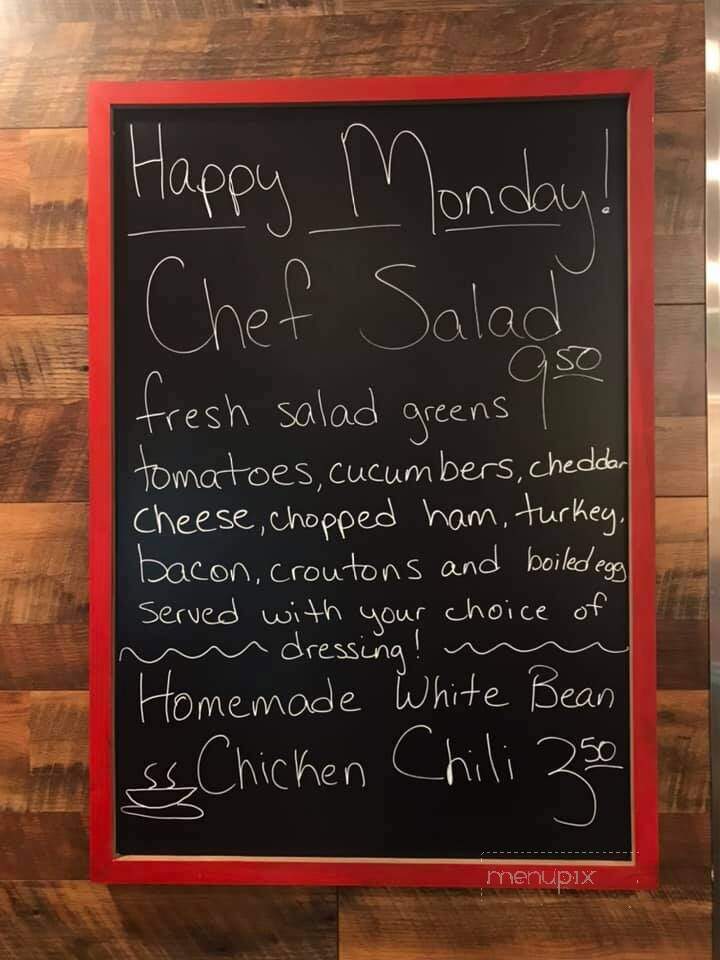 Happy Monday!
Chef Salad
9.50
fresh salad greens
tomatoes, cucumbers, cheddar
cheese, chopped ham, turkey,
bacon, croutons and boiled egg
served with your choice of
dressing!
Homemade White Bean
Chicken Chili 3.50
menupix